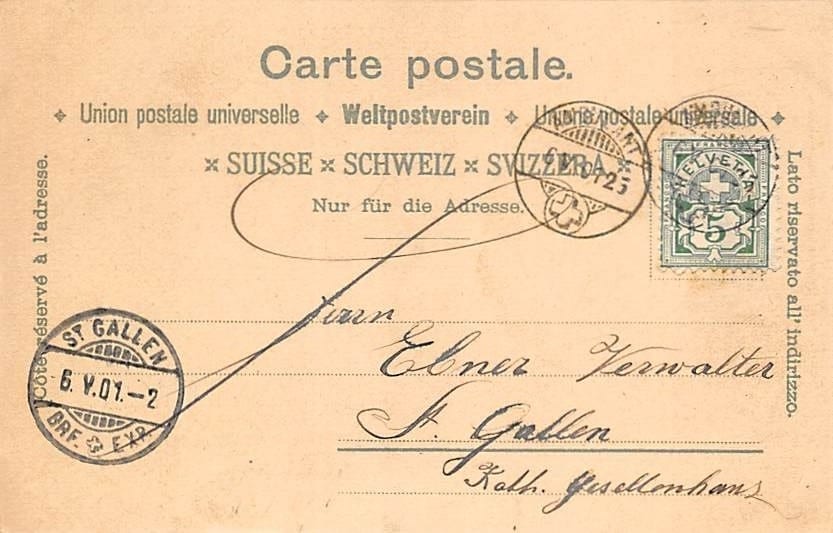 Carte postale.
✦ Union postale universelle ✦ Weltpostverein ✦ Unione postale universale ✦
× SUISSE × SCHWEIZ × SVIZZERA ×
Nur für die Adresse.
Côté réservé à l'adresse.
Lato riservato all' indirizzo.
HELVETIA
5
ST GALLEN
6. V.01.-2
BRF. EXP.
Herrn
Ebner Verwalter
St. Gallen
Kath. Gesellenhaus